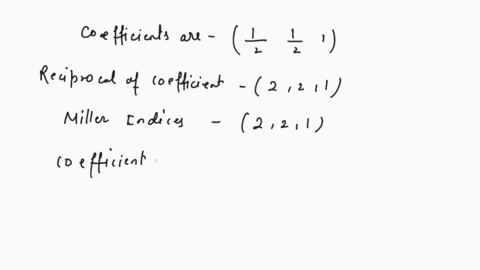 Coefficients are - (1/2 1/2 1)
Reciprocal of coefficient - (2, 2, 1)
Miller Indices - (2, 2, 1)
coefficient